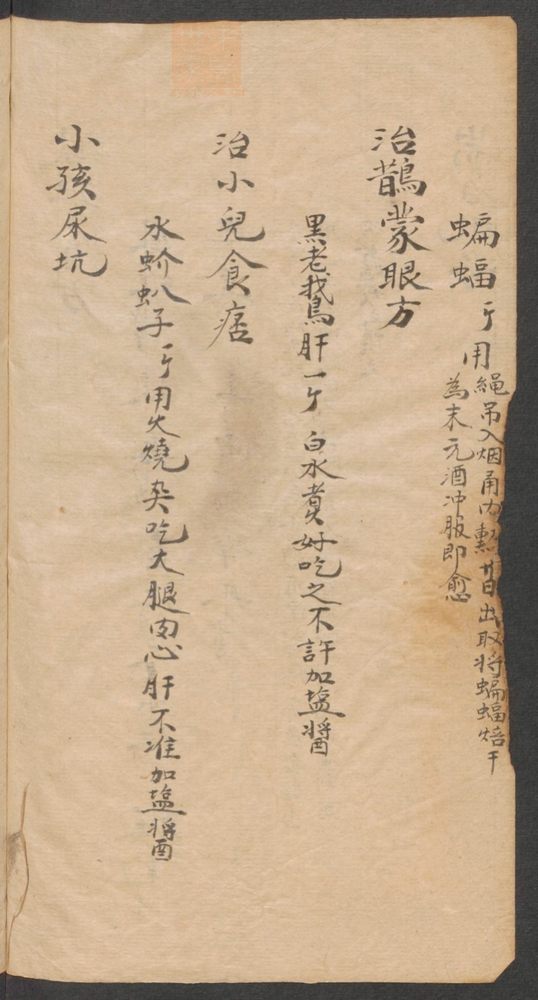 蝙蝠 亇 用繩吊入烟甬內熏廿日出取将蝙蝠焙干
為末元酒冲服即愈
治鵲蒙眼方
黑老鵞肝一亇 白水煮好吃之不許加塩醬
治小兒食痞
水蚧虯子亇用火燒 吃大腿肉心肝不准加塩醬
小孩尿坑